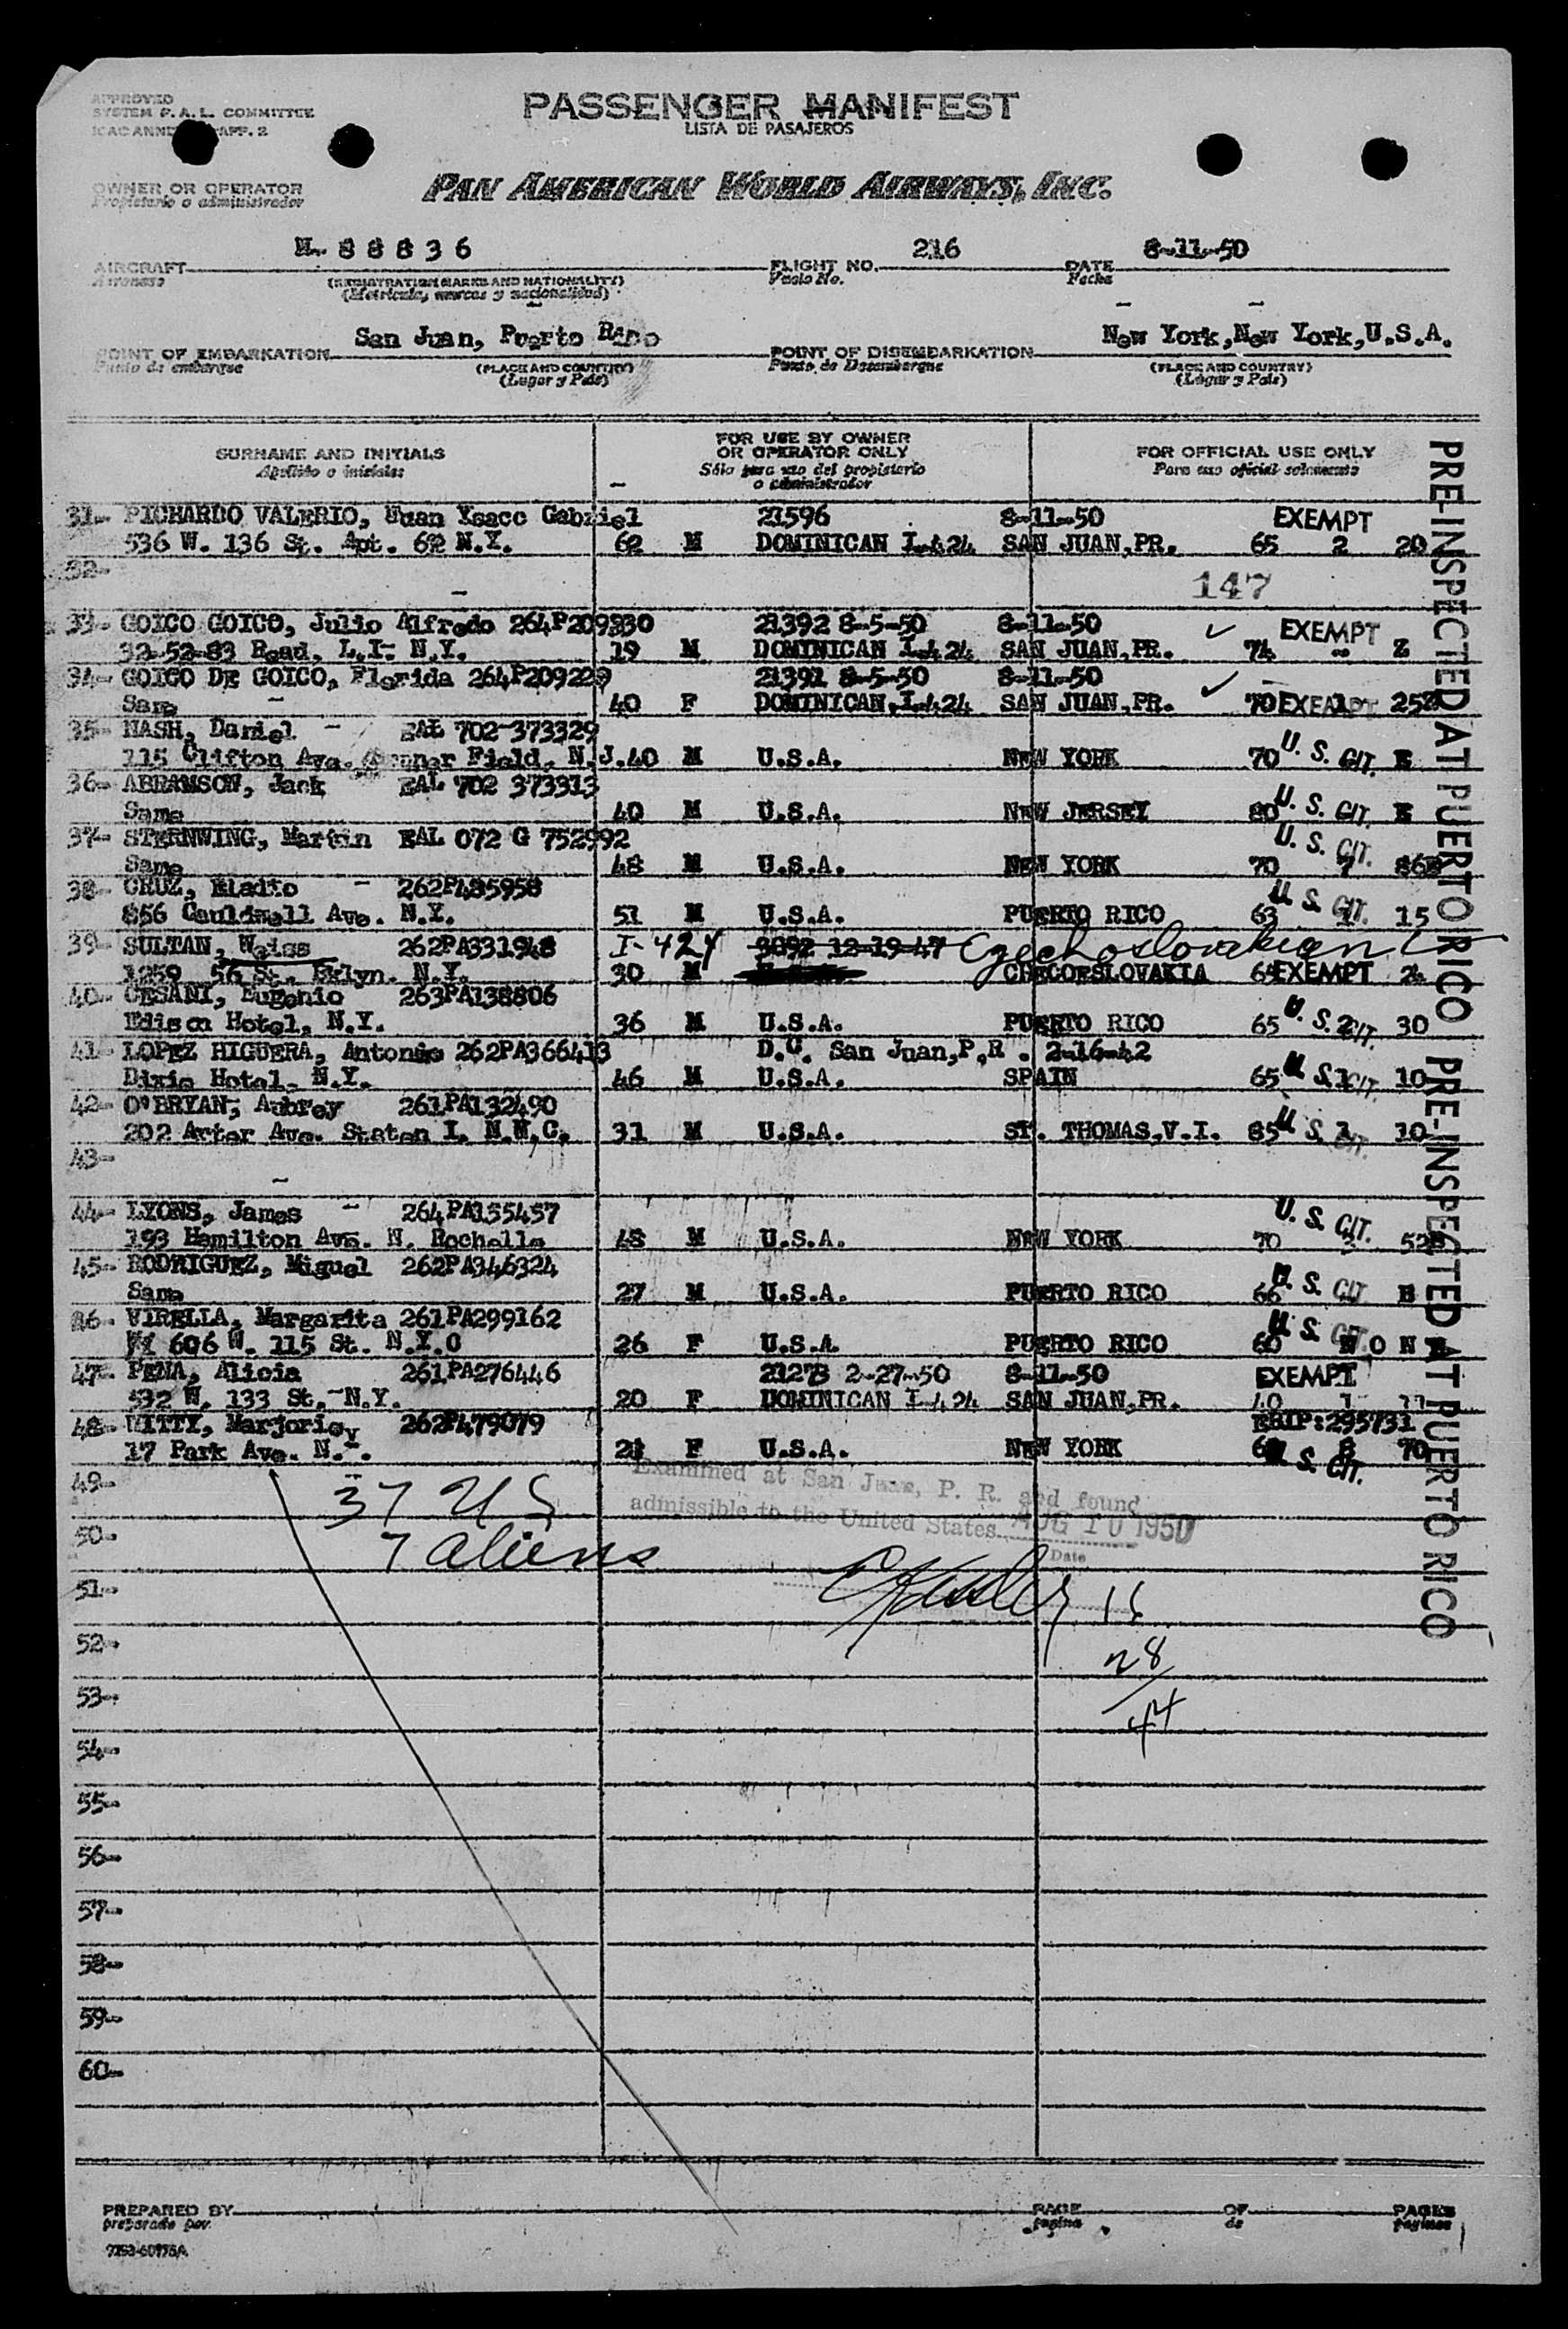 APPROVED
SYSTEM F.A.L. COMMITTEE
ICAO ANNEX APP. 2
PASSENGER MANIFEST
LISTA DE PASAJEROS
OWNER OR OPERATOR
Propietario o administrador
PAN AMERICAN WORLD AIRWAYS, INC.
AIRCRAFT N- 88836 FLIGHT NO. 216 DATE 8-11-50
Aeronave (REGISTRATION MARKS AND NATIONALITY) Vuelo No. Fecha
(Matricula, marcas y nacionalidad)
POINT OF EMBARKATION San Juan, Puerto Rico POINT OF DISEMBARKATION New York, New York, U.S.A.
Punto de embarque (PLACE AND COUNTRY) Punto de Desembarque (PLACE AND COUNTRY)
(Lugar y País) (Lugar y País)
SURNAME AND INITIALS FOR USE BY OWNER OR OPERATOR ONLY FOR OFFICIAL USE ONLY
Apellido e iniciales Sólo para uso del propietario o administrador Para uso oficial solamente
31- PICHARDO VALERIO, Juan Ysacc Gabriel 21596 8-11-50 EXEMPT
536 W. 136 St. Apt. 62 N.Y. 62 M DOMINICAN I-424 SAN JUAN, PR. 65 2 20
32- 147
33- GOICO GOICO, Julio Alfredo 264P209930 21392 8-5-50 8-11-50 EXEMPT
32-52-83 Road, L.I. N.Y. 19 M DOMINICAN I-424 SAN JUAN, PR. 74 - Z
34- GOICO DE GOICO, Florida 264P209229 21391 8-5-50 8-11-50
Same 40 F DOMINICAN, I-424 SAN JUAN, PR. 70 EXEMPT 25
35- NASH, Daniel EAL 702-373329
115 Clifton Ave. Field, N.J. 40 M U.S.A. NEW YORK 70 U. S. CIT. E
36- ABRAMSON, Jack EAL 702 373313
Same 40 M U.S.A. NEW JERSEY 80 U. S. CIT. E
37- STERNWING, Martin EAL 072 G 752992 U. S. CIT.
Same 48 M U.S.A. NEW YORK 70 7 86
38- CRUZ, Eladio 262P485958 U. S. CIT.
856 Cauldwell Ave. N.Y. 51 M U.S.A. PUERTO RICO 63 1 15
39- SULTAN, Weiss 262PA331948 I-424 3092 12-19-47 Czechoslovakian
1259 56 St. Bklyn. N.Y. 30 M CHECOESLOVAKIA 64 EXEMPT 24
40- CESANI, Eugenio 263PA138806
Edison Hotel, N.Y. 36 M U.S.A. PUERTO RICO 65 U. S. CIT. 2 30
41- LOPEZ HIGUERA, Antonio 262PA366413 D.C. San Juan, P.R. 2-16-42
Dixie Hotel, N.Y. 46 M U.S.A. SPAIN 65 U. S. CIT. 1 10
42- O'BRYAN, Aubrey 261PA132490
202 Arter Ave. Staten I. N.N.C. 31 M U.S.A. ST. THOMAS, V.I. 85 U. S. CIT. 1 10
43-
44- LYONS, James 264PA155457 U. S. CIT.
193 Hamilton Ave. N. Rochelle 48 M U.S.A. NEW YORK 70 3 52
45- RODRIGUEZ, Miguel 262PA346324
Same 27 M U.S.A. PUERTO RICO 66 U. S. CIT E
46- VIRELLA, Margarita 261PA299162 U. S. CIT.
606 W. 115 St. N.Y.C 26 F U.S.A. PUERTO RICO 60 NONE
47- PENA, Alicia 261PA276446 21273 2-27-50 8-11-50 EXEMPT
532 W. 133 St. N.Y. 20 F DOMINICAN I-424 SAN JUAN, PR. 40 1 11
48- WITTY, Marjorie 262P479079 EBIP:295731
17 Park Ave. N.Y. 21 F U.S.A. NEW YORK 8 70
U. S. CIT.
49- 37 US
Examined at San Juan, P. R. and found
admissible to the United States AUG 10 1950
Date
50- 7 aliens
51- 16
52- 28
53- 44
54-
55-
56-
57-
58-
59-
60-
PREPARED BY PAGE OF PAGES
preparado por página de páginas
PRE-INSPECTED AT PUERTO RICO
PRE-INSPECTED AT PUERTO RICO